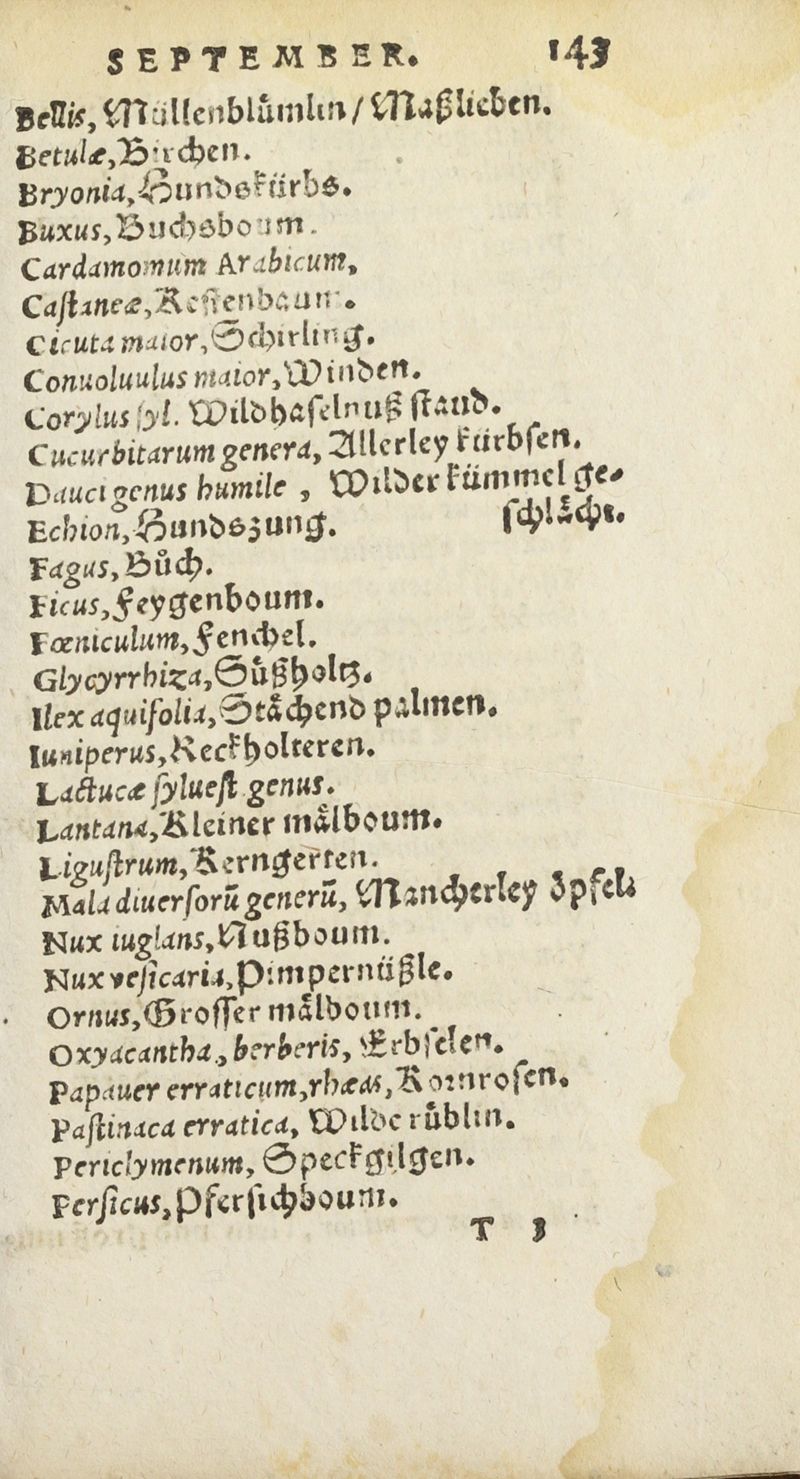 SEPTEMBER. 143
Bellis, Müllenblůmlin / Maßlieben.
Betulæ, Birchen.
Bryonia, Hundskürbs.
Buxus, Buchsboum.
Cardamomum Arabicum,
Caſtaneæ, Keſtenbaum.
Cicuta maior, Schirling.
Conuoluulus maior, Winden.
Corylus ſyl. Wildhaſelnuß ſtaud.
Cucurbitarum genera, Allerley kürbſen.
Dauci genus humile , Wilder kümmel ge-
Echion, Hundszung. ſchlächt.
Fagus, Bůch.
Ficus, Feygenboum.
Fœniculum, Fenchel.
Glycyrrhiza, Sůßholtz.
Ilex aquifolia, Stächend palmen.
Iuniperus, Reckholteren.
Lactucæ ſylueſt genus.
Lantana, Kleiner mälboum.
Liguſtrum, Kerngerten.
Mala diuerſorū generū, Mancherley öpfel
Nux iuglans, Nußboum.
Nux veſicaria, Pimpernüßle.
Ornus, Groſſer mälboum.
Oxyacantha, berberis, Erbſelen.
Papauer erraticum, rhæas, Kornroſen.
Paſtinaca erratica, Wilde růblin.
Periclymenum, Speckgilgen.
Perſicus, Pferſichboum.
T 3